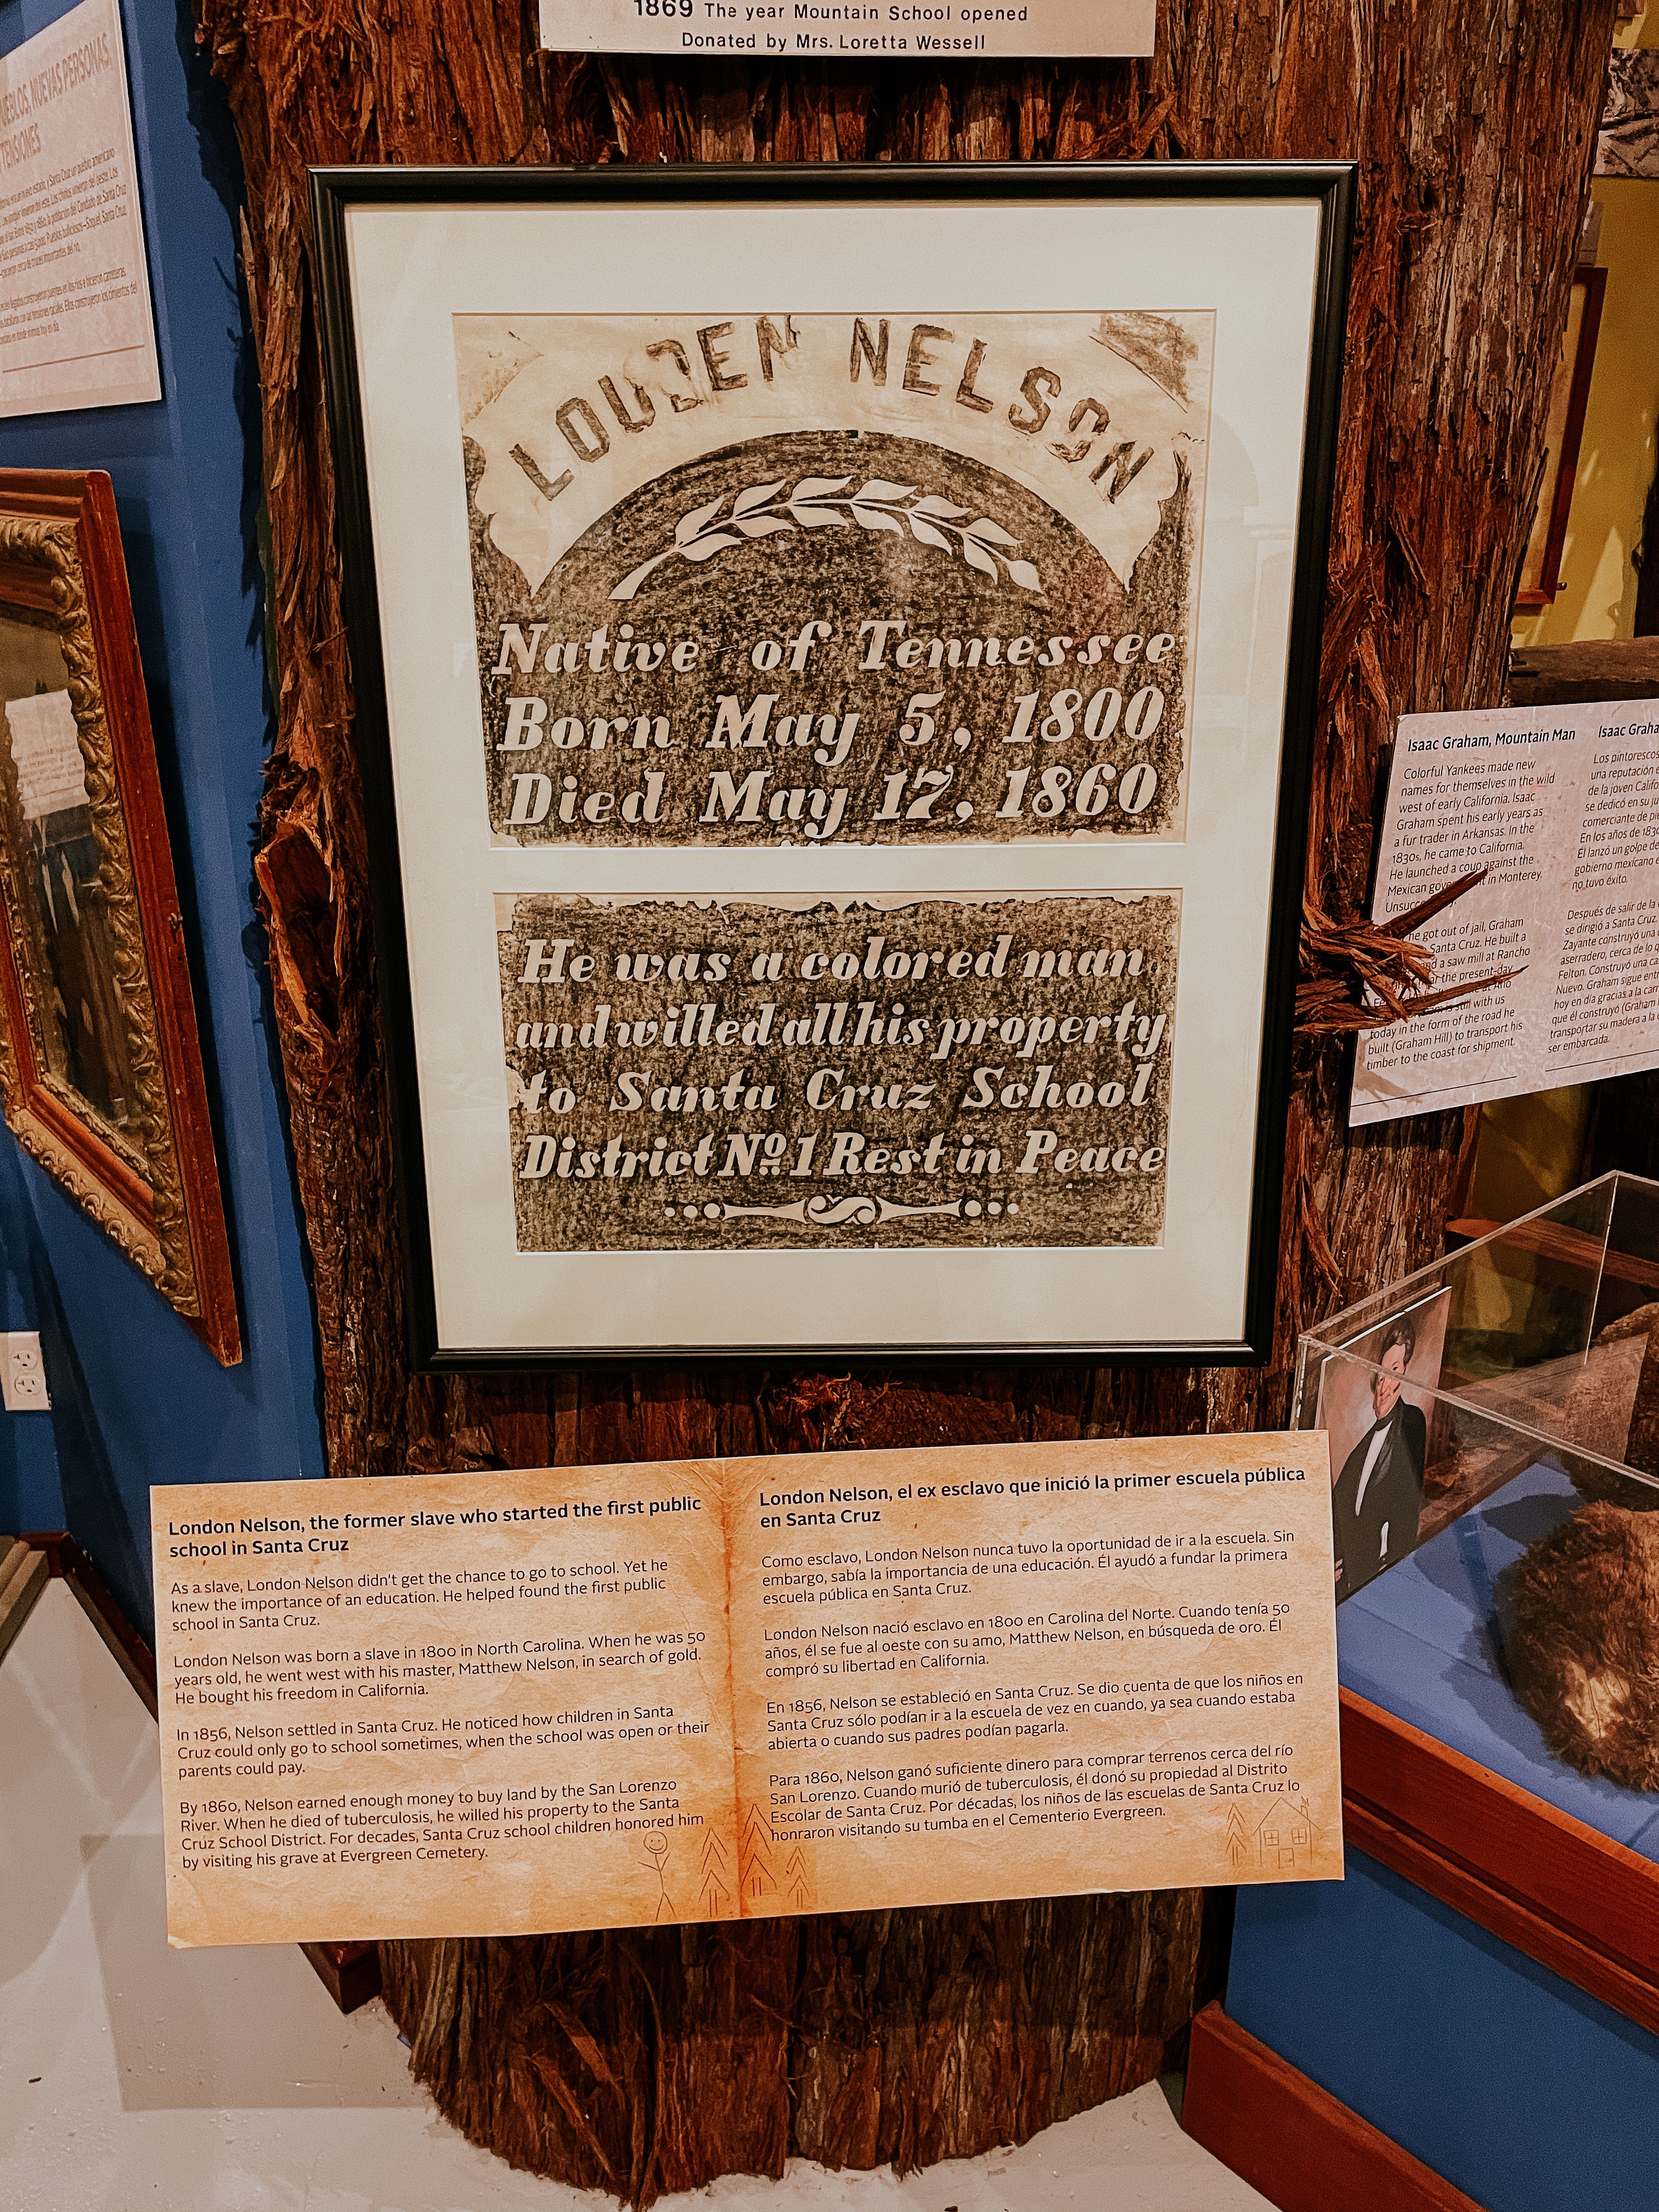 1869 The year Mountain School opened
Donated by Mrs. Loretta Wessell
PUEBLOS, NUEVAS PERSONAS,
TENSIONES
LOUDEN NELSON
Native of Tennessee
Born May 5, 1800
Died May 17, 1860
He was a colored man
and willed all his property
to Santa Cruz School
District No. 1 Rest in Peace
London Nelson, the former slave who started the first public
school in Santa Cruz
As a slave, London Nelson didn't get the chance to go to school. Yet he
knew the importance of an education. He helped found the first public
school in Santa Cruz.
London Nelson was born a slave in 1800 in North Carolina. When he was 50
years old, he went west with his master, Matthew Nelson, in search of gold.
He bought his freedom in California.
In 1856, Nelson settled in Santa Cruz. He noticed how children in Santa
Cruz could only go to school sometimes, when the school was open or their
parents could pay.
By 1860, Nelson earned enough money to buy land by the San Lorenzo
River. When he died of tuberculosis, he willed his property to the Santa
Cruz School District. For decades, Santa Cruz school children honored him
by visiting his grave at Evergreen Cemetery.
London Nelson, el ex esclavo que inició la primer escuela pública
en Santa Cruz
Como esclavo, London Nelson nunca tuvo la oportunidad de ir a la escuela. Sin
embargo, sabía la importancia de una educación. Él ayudó a fundar la primera
escuela pública en Santa Cruz.
London Nelson nació esclavo en 1800 en Carolina del Norte. Cuando tenía 50
años, él se fue al oeste con su amo, Matthew Nelson, en búsqueda de oro. Él
compró su libertad en California.
En 1856, Nelson se estableció en Santa Cruz. Se dio cuenta de que los niños en
Santa Cruz sólo podían ir a la escuela de vez en cuando, ya sea cuando estaba
abierta o cuando sus padres podían pagarla.
Para 1860, Nelson ganó suficiente dinero para comprar terrenos cerca del río
San Lorenzo. Cuando murió de tuberculosis, él donó su propiedad al Distrito
Escolar de Santa Cruz. Por décadas, los niños de las escuelas de Santa Cruz lo
honraron visitando su tumba en el Cementerio Evergreen.
Isaac Graham, Mountain Man
Colorful Yankees made new
names for themselves in the wild
west of early California. Isaac
Graham spent his early years as
a fur trader in Arkansas. In the
1830s, he came to California.
He launched a coup against the
Mexican in Monterey.
he got out of jail, Graham
Santa Cruz. He built a
a saw mill at Rancho
the present-day
is still with us
today in the form of the road he
built (Graham Hill) to transport his
timber to the coast for shipment.
Isaac
Los pintorescos
una reputación
de la joven
se dedicó en su
comerciante de
En los años de
Él lanzó un golpe de
gobierno mexicano
no tuvo éxito.
Después de salir de la
se dirigió a Santa Cruz.
Zayante construyó una
aserradero, cerca de lo
Felton. Construyó una
Nuevo. Graham sigue
hoy en día gracias a la
que él construyó (Graham
transportar su madera a la
ser embarcada.